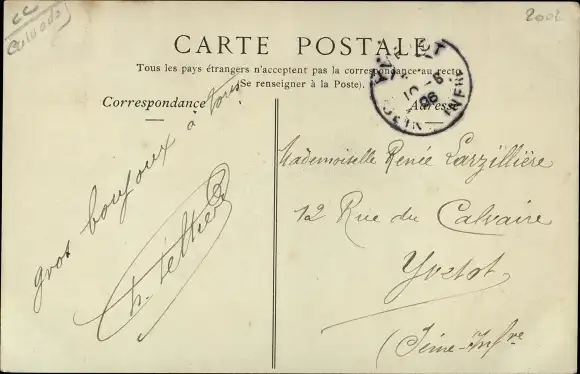 cc
Calvados
2001
CARTE POSTALE
Tous les pays étrangers n'acceptent pas la correspondance au recto
(Se renseigner à la Poste).
Correspondance
Adresse
gros boujoux à tous
Ch. Teltier
Mademoiselle Renée Larzillière
12 Rue du Calvaire
Yvetot
(Seine-Infre
YVETOT
10 - 6
06
SEINE INFRE